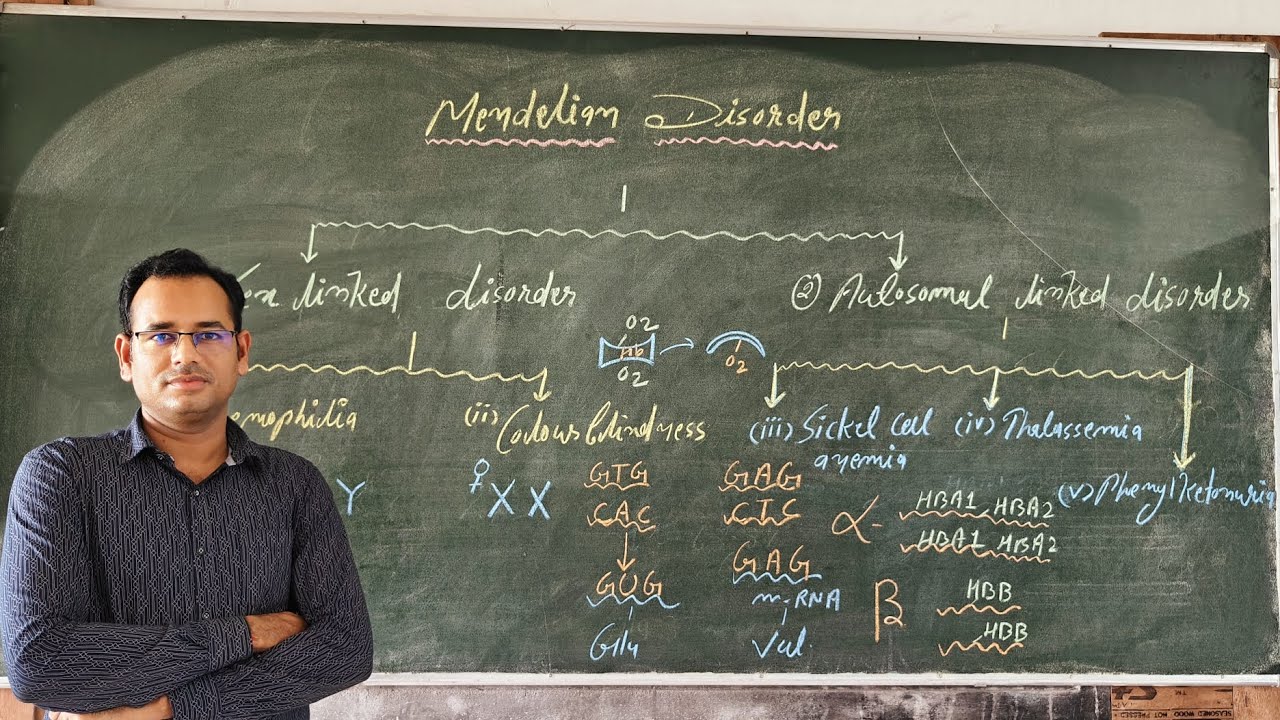 Mendelian Disorder
ex linked disorder
② Autosomal linked disorder
O2
Hb
O2
O2
emophidia
(ii) Colour blindness
(iii) Sickel cell anemia
(iv) Thalassemia
(v) Phenylketonuria
Y
♀ X X
GTG
CAC
GUG
Glu
GAG
CTC
GAG
m-RNA
Val.
α-
HBA1 HBA2
HBA1 HBA2
β
HBB
HBB
SEASONED WOOD
NOT PRESSED